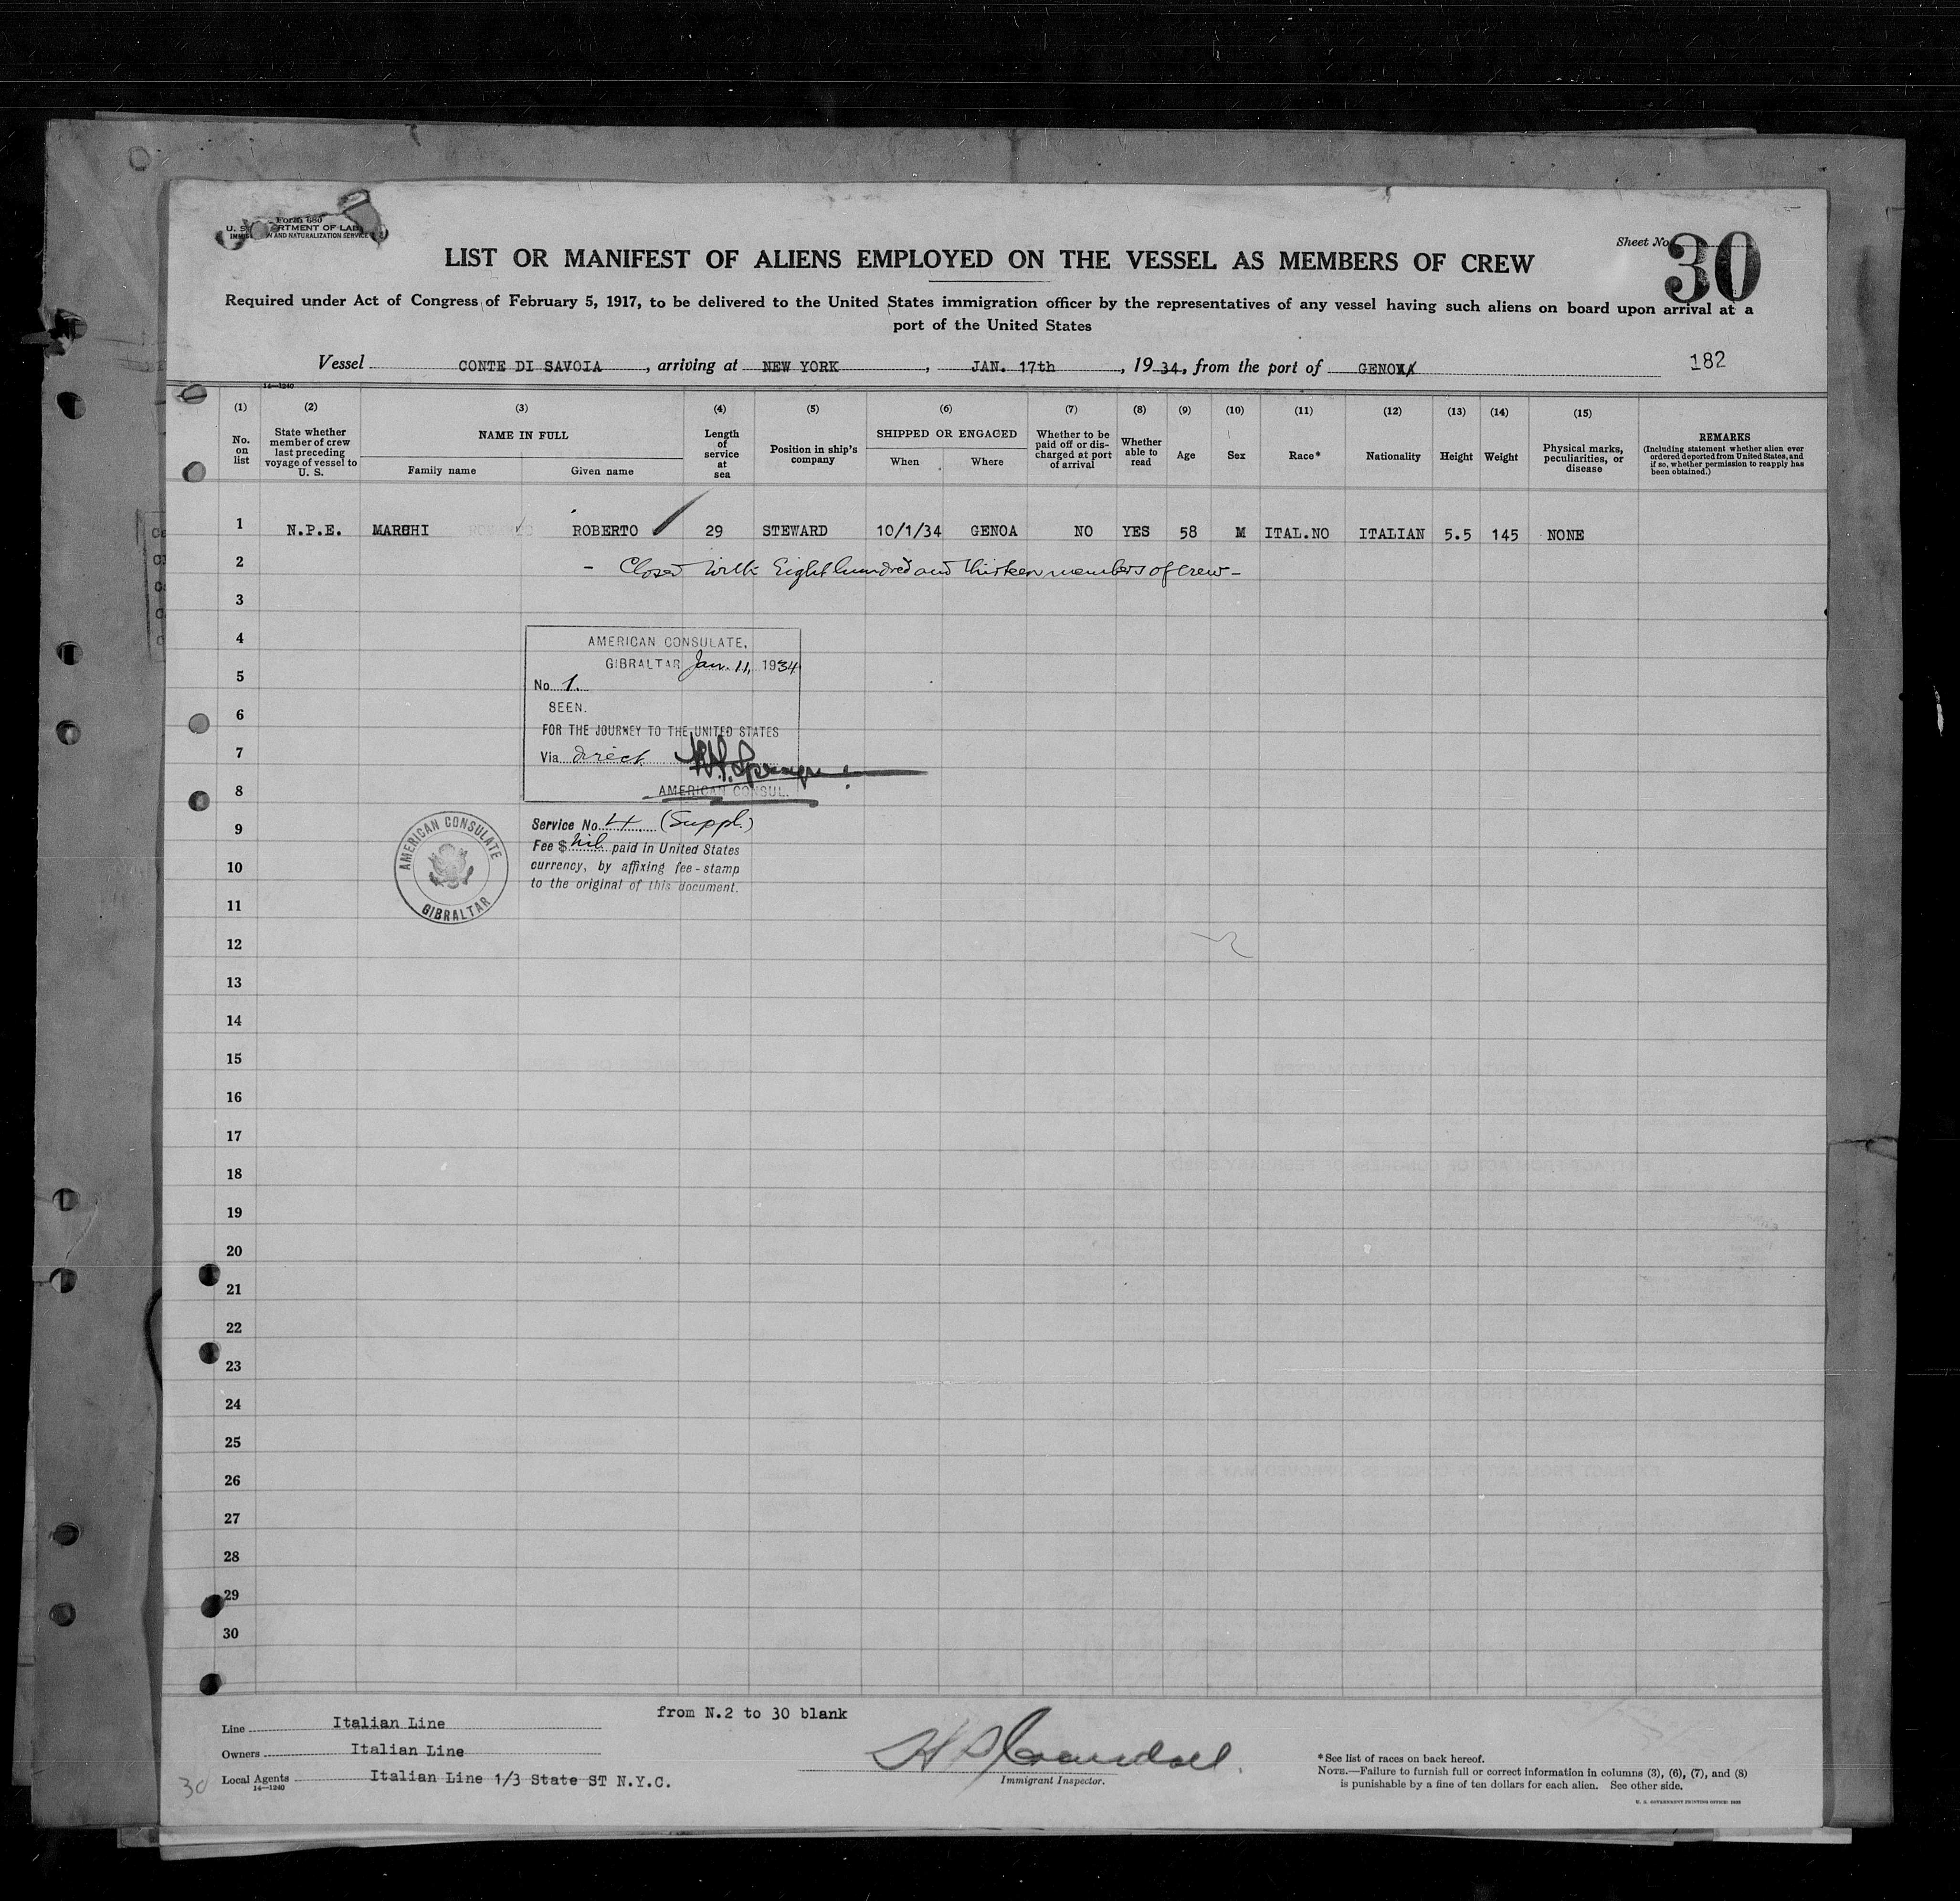 Form 680
U. S. DEPARTMENT OF LABOR
IMMIGRATION AND NATURALIZATION SERVICE
Sheet No. 30
LIST OR MANIFEST OF ALIENS EMPLOYED ON THE VESSEL AS MEMBERS OF CREW
Required under Act of Congress of February 5, 1917, to be delivered to the United States immigration officer by the representatives of any vessel having such aliens on board upon arrival at a
port of the United States
Vessel CONTE DI SAVOIA, arriving at NEW YORK, JAN. 17th, 1934, from the port of GENOA
182
14—1240
(1) No. on list
(2) State whether member of crew last preceding voyage of vessel to U. S.
(3) NAME IN FULL Family name Given name
(4) Length of service at sea
(5) Position in ship's company
(6) SHIPPED OR ENGAGED When Where
(7) Whether to be paid off or discharged at port of arrival
(8) Whether able to read
(9) Age
(10) Sex
(11) Race*
(12) Nationality
(13) Height
(14) Weight
(15) Physical marks, peculiarities, or disease
REMARKS (Including statement whether alien ever ordered deported from United States, and if so, whether permission to reapply has been obtained.)
1 N.P.E. MARCHI ROBERTO 29 STEWARD 10/1/34 GENOA NO YES 58 M ITAL.NO ITALIAN 5.5 145 NONE
2 – Closed with Eight hundred and thirteen members of crew –
3
4
AMERICAN CONSULATE,
GIBRALTAR Jan. 11, 1934
5
No. 1.
SEEN.
6
FOR THE JOURNEY TO THE UNITED STATES
7
Via direct
8
AMERICAN CONSUL.
9
Service No. 4 (Suppl.)
Fee $ nil paid in United States
currency, by affixing fee-stamp
to the original of this document.
AMERICAN CONSULATE
GIBRALTAR
10
11
12
13
14
15
16
17
18
19
20
21
22
23
24
25
26
27
28
29
30
from N.2 to 30 blank
Line Italian Line
Owners Italian Line
Local Agents Italian Line 1/3 State ST N.Y.C.
14—1240
30
Immigrant Inspector.
*See list of races on back hereof.
NOTE.—Failure to furnish full or correct information in columns (3), (6), (7), and (8)
is punishable by a fine of ten dollars for each alien. See other side.